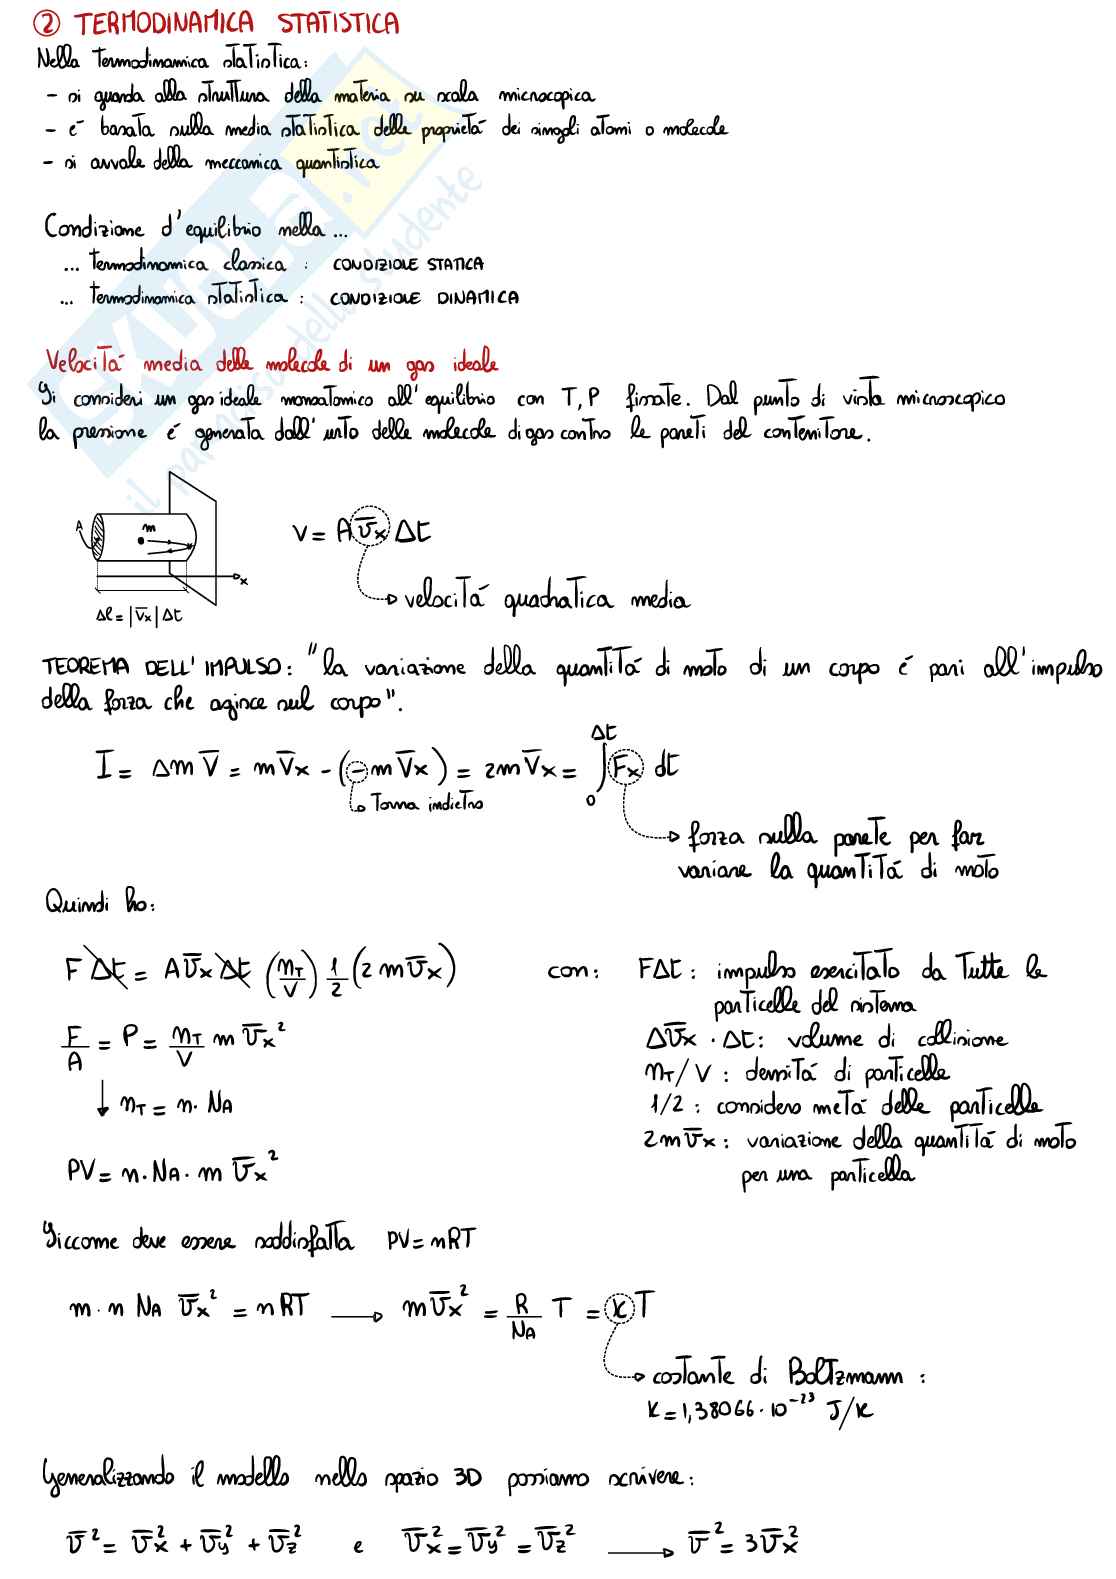 ② TERMODINAMICA STATISTICA
Nella termodinamica statistica:
- si guarda alla struttura della materia su scala microscopica
- é basata sulla media statistica delle proprietá dei singoli atomi o molecole
- si avvale della meccanica quantistica
Condizione d'equilibrio nella ...
... termodinamica classica : CONDIZIONE STATICA
... termodinamica statistica : CONDIZIONE DINAMICA
Velocitá media delle molecole di un gas ideale
Si consideri un gas ideale monoatomico all'equilibrio con T, P fissate. Dal punto di vista microscopico
la pressione é generata dall'urto delle molecole di gas contro le pareti del contenitore.
A m x
Δl = |v̅x| Δt
V = A v̅x Δt
velocitá quadratica media
TEOREMA DELL'IMPULSO: "la variazione della quantitá di moto di un corpo é pari all'impulso
della forza che agisce sul corpo".
I = Δm V̅ = m V̅x - (-m V̅x) = 2m V̅x = ∫₀^Δt Fx dt
torna indietro
forza sulla parete per far
variare la quantitá di moto
Quindi ho:
F Δt = A v̅x Δt (nT/V) 1/2 (2 m v̅x)
F/A = P = nT/V m v̅x²
↓ nT = n · NA
PV = n · NA · m v̅x²
con: FΔt : impulso esercitato da tutte le
particelle del sistema
Δv̅x · Δt: volume di collisione
nT/V : densitá di particelle
1/2 : considero metá delle particelle
2m v̅x : variazione della quantitá di moto
per una particella
Siccome deve essere soddisfatta PV = nRT
m · n NA v̅x² = nRT → m v̅x² = R/NA T = k T
costante di Boltzmann :
K = 1,38066 · 10⁻²³ J/K
Generalizzando il modello nello spazio 3D possiamo scrivere:
v̅² = v̅x² + v̅y² + v̅z² e v̅x² = v̅y² = v̅z² → v̅² = 3 v̅x²
SKUOLA.net
il paradiso dello studente